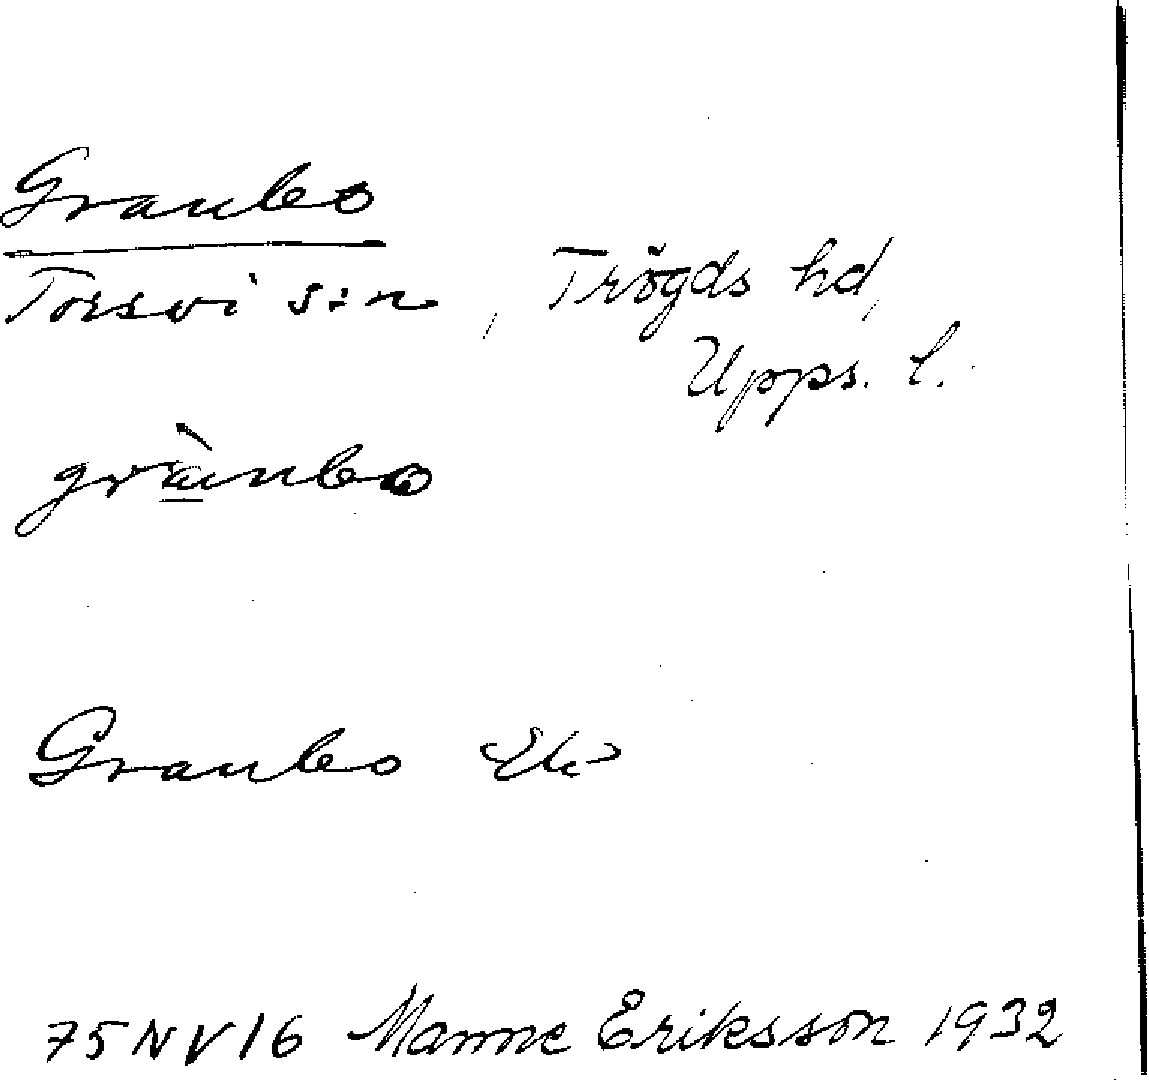 Granbo
Torsvi s:n, Trögds hd,
Upps. l.
grànbo
Granbo Ek
75 NV 16 Manne Eriksson 1932